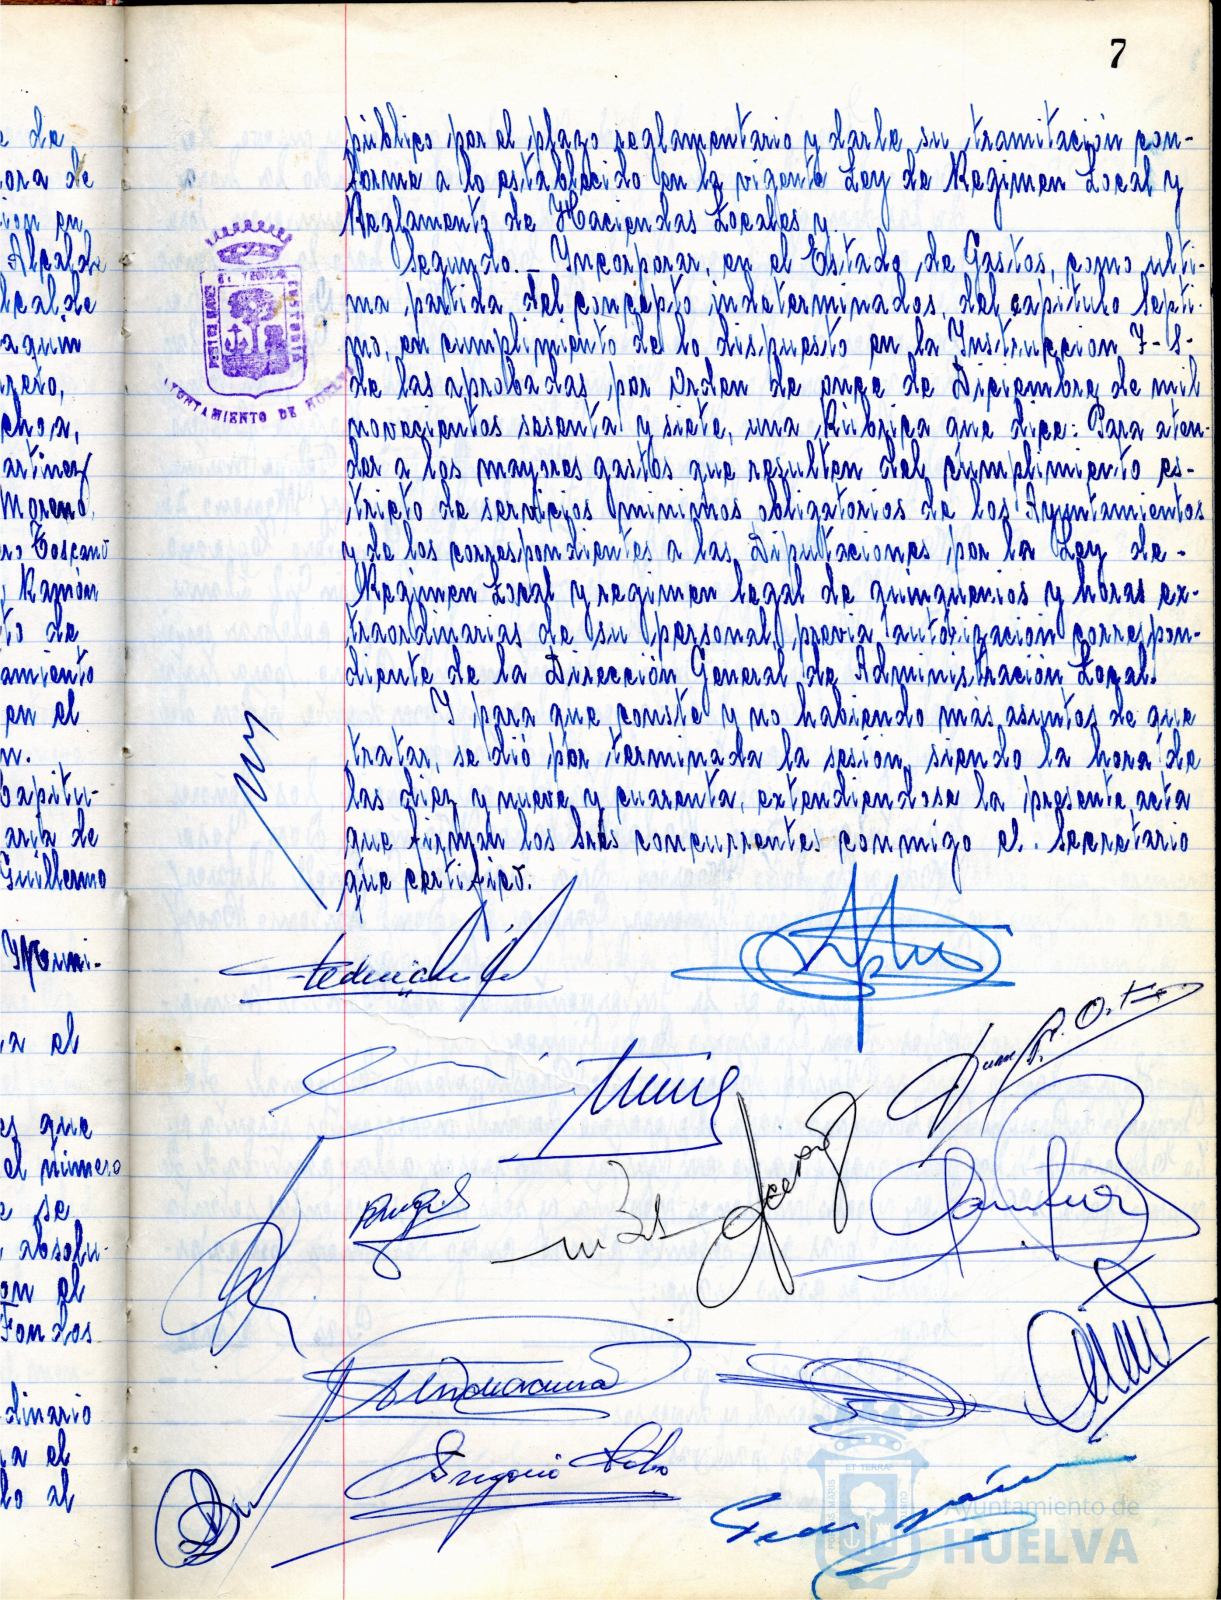 7
público por el plazo reglamentario y darle su tramitación con-
forme a lo establecido en la vigente Ley de Regimen Local y
Reglamento de Haciendas Locales y.
Segundo.- Incorporar, en el Estado de Gastos, como ulti-
ma partida del concepto indeterminados, del capitulo Septi-
mo, en cumplimiento de lo dispuesto en la Instruccion 7-8-
de las aprobadas por Orden de once de Diciembre de mil
novecientos sesenta y siete, una Rúbrica que dice: Para aten-
der a los mayores gastos que resulten del cumplimiento es-
tricto de servicios minimos obligatorios de los Ayuntamientos
y de los correspondientes a las Diputaciones por la Ley de-
Regimen Local y regimen legal de quinquenios y horas ex-
traordinarias de su personal, previa autorización correspon-
diente de la Dirección General de Administración Local.
Y para que conste y no habiendo más asuntos de que
tratar, se dió por terminada la sesión, siendo la hora de
las diez y nueve y cuarenta, extendiendose la presente acta
que firman los Sres concurrentes conmigo el Secretario
que certifico.
e de
ora de
ion en
Alcalde
lcalde
aquin
choa,
artinez
Moreno,
ro Toscano
, Ramón
to de
amiento
en el
n.
Capitu-
aria de
Guillermo
Muni-
a el
es que
el número
e se
, absolu-
on el
Fondos
dinario
a el
lo al
AYUNTAMIENTO DE HUELVA
Gregorio
Ayuntamiento de
HUELVA